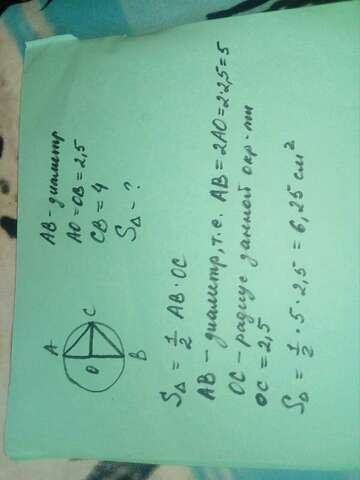 AB - диаметр
AO = OB = 2,5
CB = 4
S△ - ?
A
C
O
B
S△ = 1/2 AB · OC
AB - диаметр, т.е. AB = 2AO = 2·2,5 = 5
OC - радиус данной окр-ти
OC = 2,5
S△ = 1/2 · 5 · 2,5 = 6,25 см²